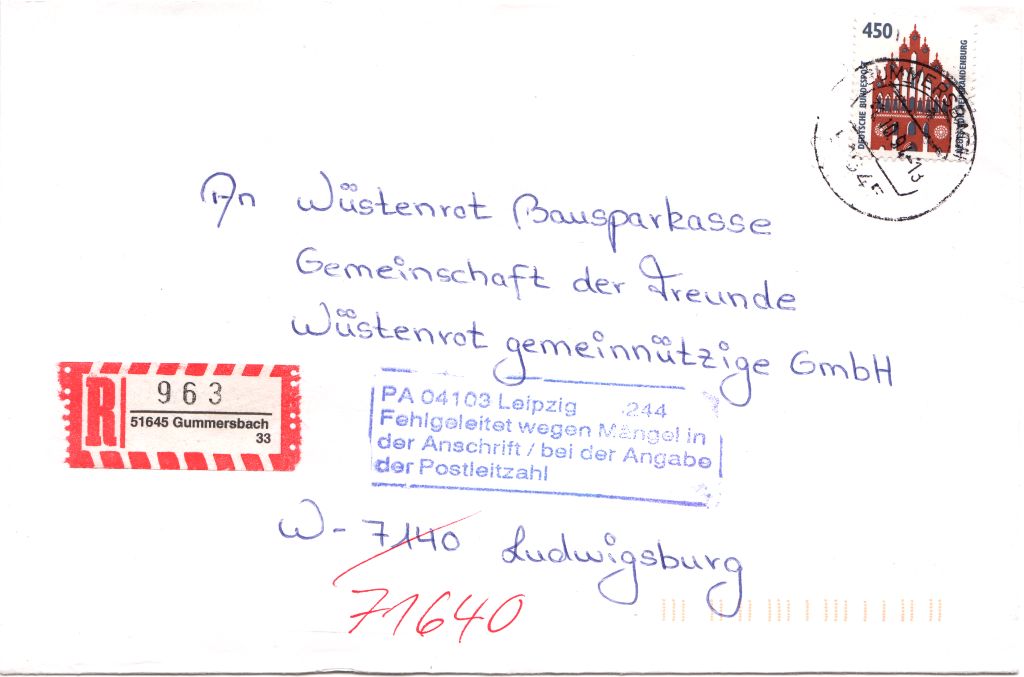 450
DEUTSCHE BUNDESPOST
NEUBRANDENBURG
GUMMERSBACH
An Wüstenrot Bausparkasse
Gemeinschaft der Freunde
Wüstenrot gemeinnützige GmbH
R
963
51645 Gummersbach
33
PA 04103 Leipzig 244
Fehlgeleitet wegen Mängel in
der Anschrift / bei der Angabe
der Postleitzahl
W- 7140 Ludwigsburg
71640